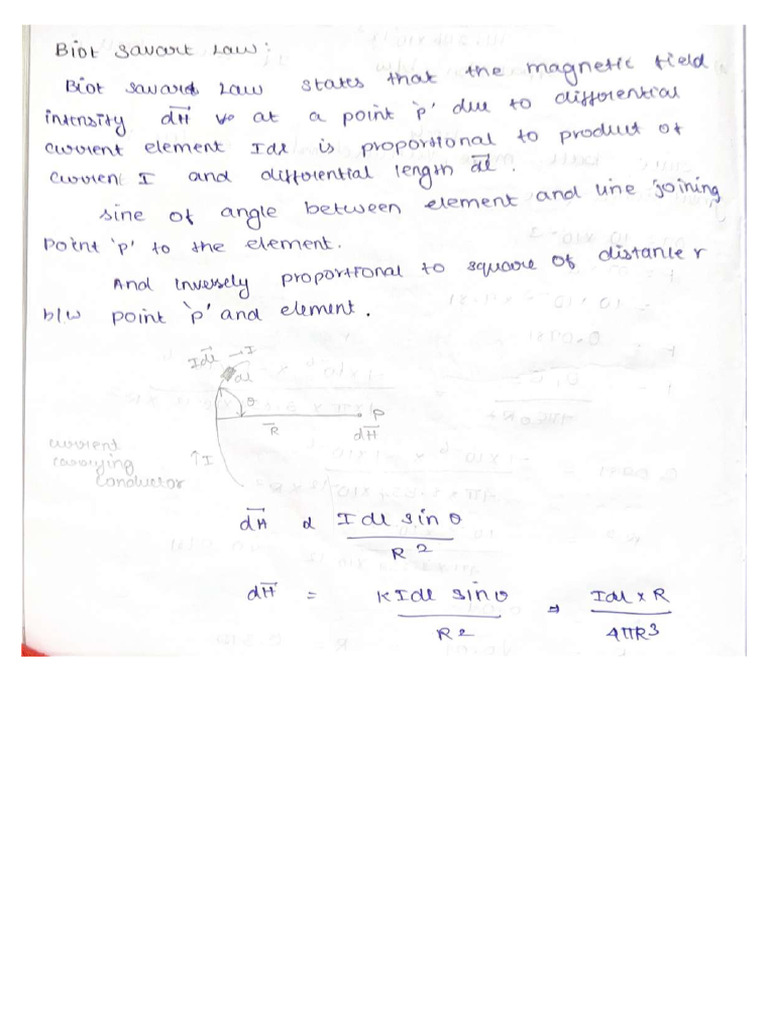 Biot Savart Law:
Biot Savart Law states that the magnetic field
intensity dH at a point 'p' due to differential
current element Idl is proportional to product of
current I and differential length dl.
sine of angle between element and line joining
point 'p' to the element.
And inversely proportional to square of distance r
b/w point 'p' and element.
Idl → I
dl
θ
P
R
dH
current
carrying
conductor
↑I
dH α I dl sin θ / R2
dH = K I dl sin θ / R2 ⇒ Idl x R / 4πR3